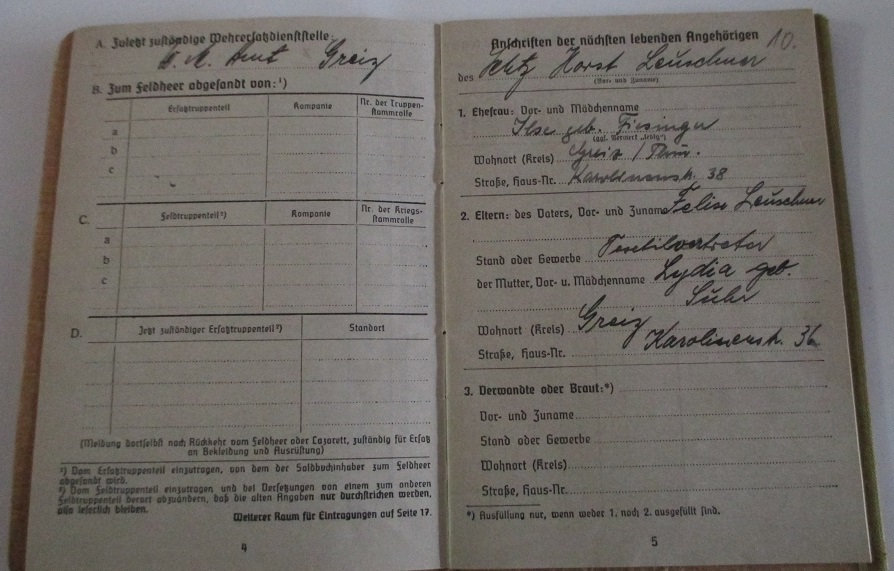 A. Zuletzt zuständige Wehrersatzdienststelle:
Greiz
B. Zum Feldheer abgesandt von:¹)
Ersatztruppenteil Kompanie Nr. der Truppen-
stammrolle
a
b
c
C. Feldtruppenteil²) Kompanie Nr. der Kriegs-
stammrolle
a
b
c
D. Jetzt zuständiger Ersatztruppenteil²) Standort
(Meldung dortselbst nach Rückkehr vom Feldheer oder Lazarett, zuständig für Ersatz
an Bekleidung und Ausrüstung)
¹) Vom Ersatztruppenteil einzutragen, von dem der Soldbuchinhaber zum Feldheer
abgesandt wird.
²) Vom Feldtruppenteil einzutragen und bei Versetzungen von einem zum anderen
Feldtruppenteil derart abzuändern, daß die alten Angaben nur durchstrichen werden,
also leserlich bleiben.
Weiterer Raum für Eintragungen auf Seite 17.
4
Anschriften der nächsten lebenden Angehörigen
10.
des Horst Leuschner
(Vor- und Zuname)
1. Ehefrau: Vor- und Mädchenname
Ilse geb. Fiesinger
(ggf. Vermerk „ledig")
Wohnort (Kreis) Greiz / Thür.
Straße, Haus-Nr. Karolinenstr. 38
2. Eltern: des Vaters, Vor- und Zuname Felix Leuschner
Stand oder Gewerbe Textilvertreter
der Mutter, Vor- u. Mädchenname Lydia geb.
Suhr
Wohnort (Kreis) Greiz
Straße, Haus-Nr. Karolinenstr. 36
3. Verwandte oder Braut:*)
Vor- und Zuname
Stand oder Gewerbe
Wohnort (Kreis)
Straße, Haus-Nr.
*) Ausfüllung nur, wenn weder 1. noch 2. ausgefüllt sind.
5